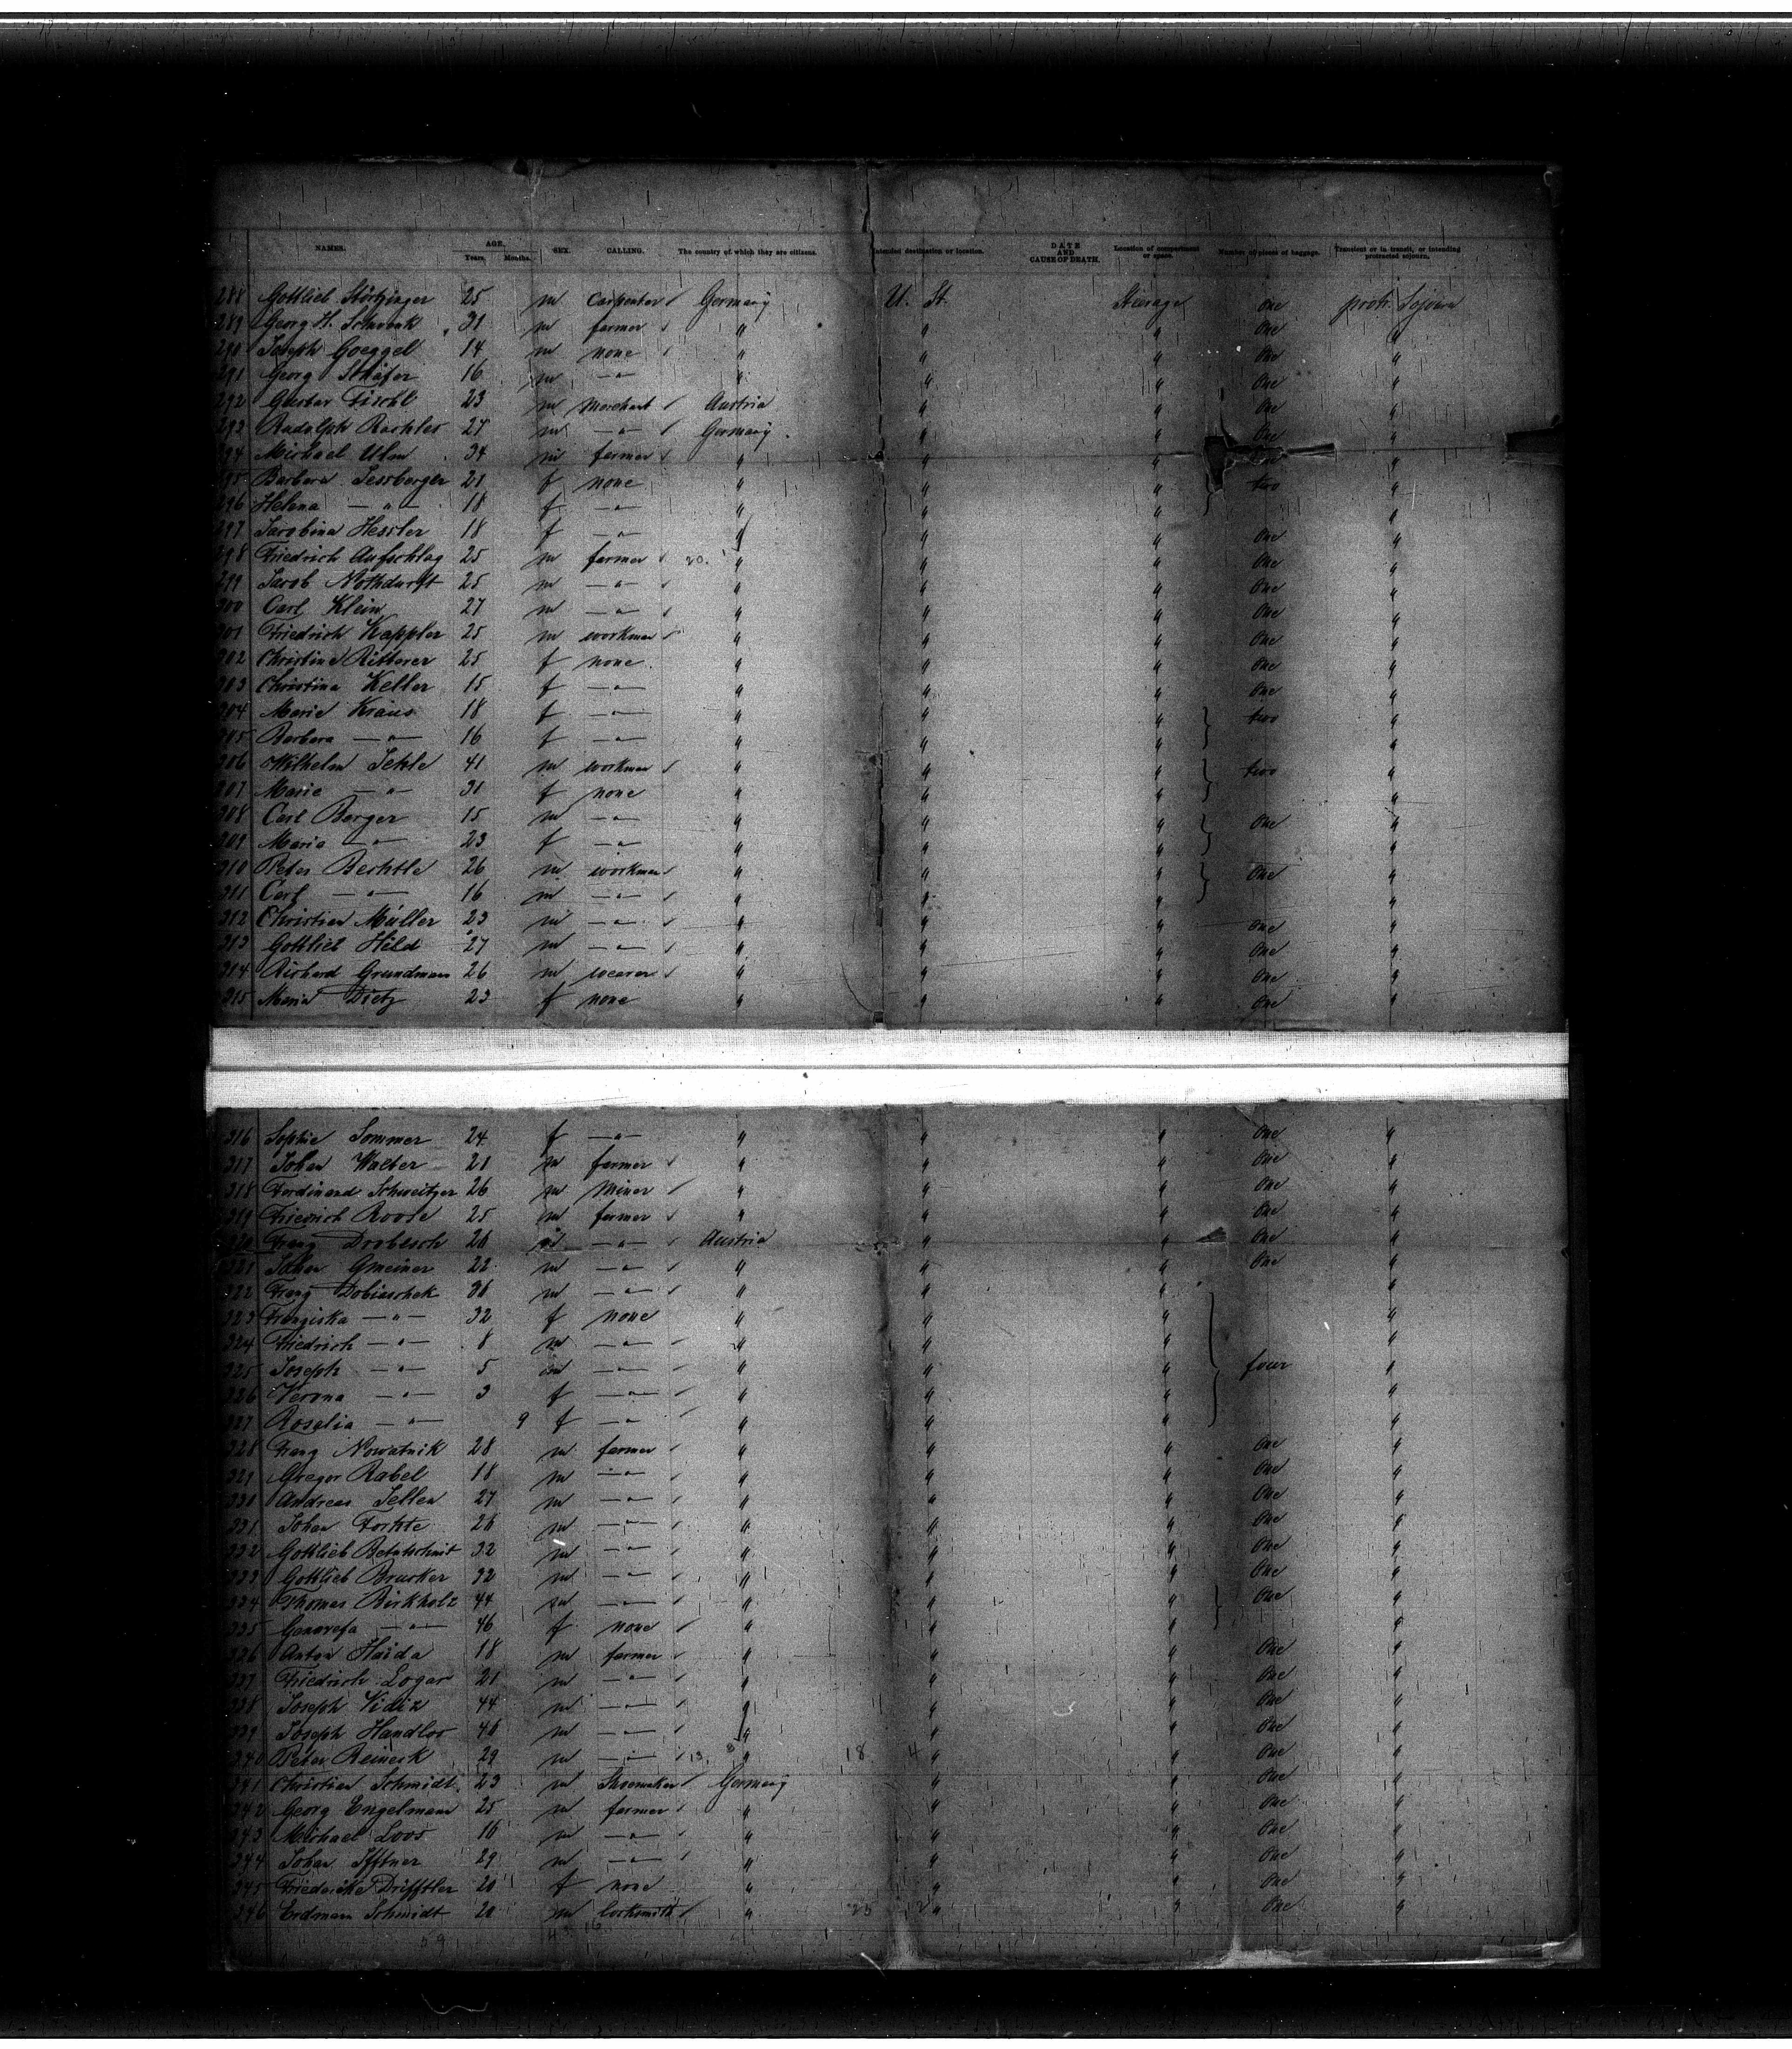 NAMES. AGE. Years. Months. SEX. CALLING. The country of which they are citizens. Intended destination or location. DATE AND CAUSE OF DEATH. Location of compartment or space. Number of pieces of baggage. Transient or in transit, or intending protracted sojourn.
288 Gottlieb Störtzinger 25 m carpenter Germany U. St. Steerage One protr. Sojourn
289 Georg H. Schwenk 31 m farmer " " " One "
290 Joseph Goeggel 14 m none " " " One "
291 Georg Schäfer 16 m —"— " " " One "
292 Gustav Fischl 23 m merchant Austria " " One "
293 Rudolph Rachles 27 m —"— Germany " " One "
294 Michael Ulm 34 m farmer " " " One "
295 Barbara Sessberger 21 f none " " " two "
296 Helena —"— 18 f —"— " " " "
297 Jacobina Hessler 18 f —"— " " " One "
298 Friedrich Aufschlag 25 m farmer 20. " " " One "
299 Jacob Nothdurft 25 m —"— " " " One "
300 Carl Klein 27 m —"— " " " One "
301 Friedrich Kappler 25 m workman " " " One "
302 Christina Ritterer 25 f none " " " One "
303 Christina Keller 15 f —"— " " " One "
304 Marie Kraus 18 f —"— " " " two "
305 Barbara —"— 16 f —"— " " " "
306 Wilhelm Jehle 41 m workman " " " two "
307 Marie —"— 31 f none " " " "
308 Carl Berger 15 m —"— " " " One "
309 Maria —"— 23 f —"— " " " "
310 Peter Bechtle 26 m workman " " " One "
311 Carl —"— 16 m —"— " " " "
312 Christian Müller 23 m —"— " " " One "
313 Gottlieb Hild 27 m —"— " " " One "
314 Richard Grundman 26 m weaver " " " One "
315 Maria Dietz 23 f none " " " One "
316 Sophie Sommer 24 f —"— " " " One "
317 Johan Walter 21 m farmer " " " One "
318 Ferdinand Schweitzer 26 m Miner " " " One "
319 Friedrich Roose 25 m farmer " " " One "
320 Franz Drobesch 20 m —"— Austria " " One "
321 Johan Gmeiner 22 m —"— " " " One "
322 Franz Dobiaschek 36 m —"— " " " "
323 Franziska —"— 32 f none " " " "
324 Friedrich —"— 8 m —"— " " " "
325 Joseph —"— 5 m —"— " " " four "
326 Verona —"— 3 f —"— " " " "
327 Rosalia —"— 9 f —"— " " " "
328 Franz Nowatnik 28 m farmer " " " One "
329 Gregor Rabel 18 m —"— " " " One "
330 Andreas Sellen 27 m —"— " " " One "
331 Johan Forkte 26 m —"— " " " One "
332 Gottlieb 32 m —"— " " " One "
333 Gottlieb Brucker 32 m —"— " " " One "
334 Thomas Birkholz 44 m —"— " " " One "
335 Genovefa —"— 46 f none " " " "
336 Anton Haida 18 m farmer " " " One "
337 Friedrich Logar 21 m —"— " " " One "
338 Joseph Vidiz 44 m —"— " " " One "
339 Joseph Handlos 46 m —"— " " " One "
340 Peter Reineck 29 m —"— 13. 8 " 18 4 " " One "
341 Christian Schmidt 23 m Shoemaker Germany " " One "
342 Georg Engelmann 25 m farmer " " " One "
343 Michael Loos 16 m —"— " " " One "
344 Johan Ifftner 29 m —"— " " " One "
345 Friedericke Drifftler 20 f none " " " One "
346 Erdman Schmidt 20 m locksmith " 25 12 " " One "
59 43 16